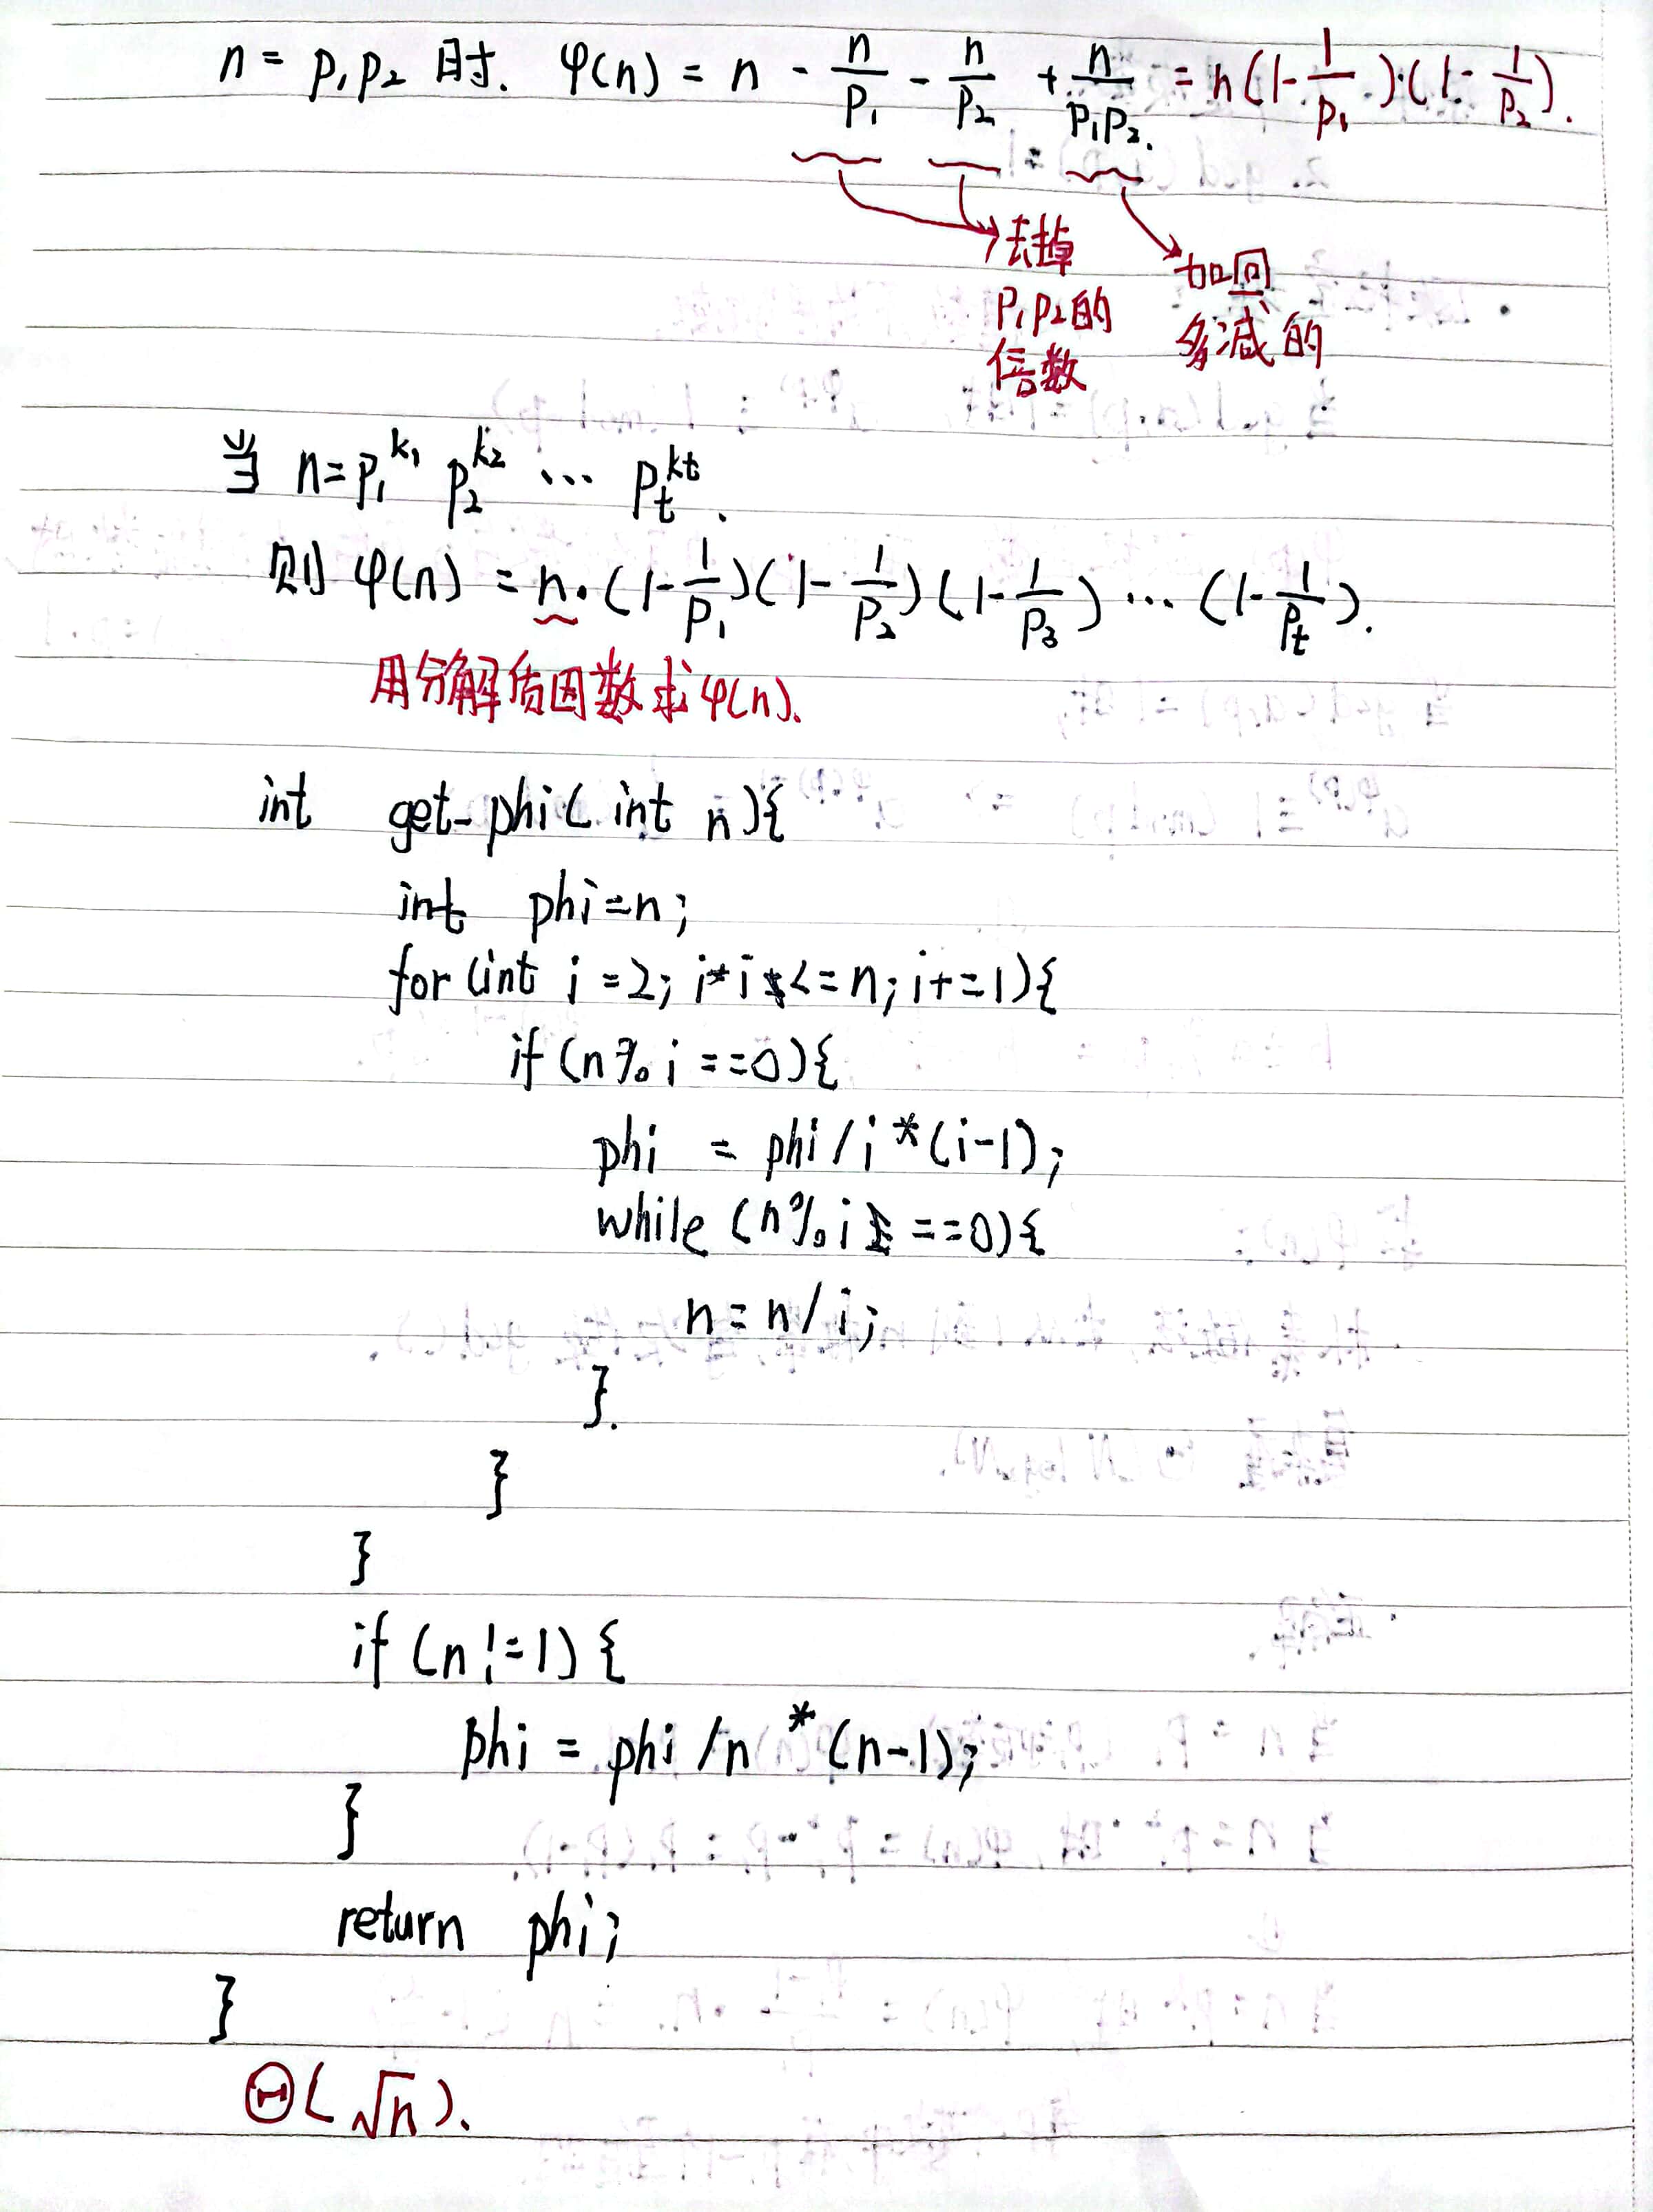 n = p₁p₂ 时. φ(n) = n - n/p₁ - n/p₂ + n/(p₁p₂). = n(1-1/p₁)·(1-1/p₂).
去掉
p₁p₂的
倍数
加回
多减的
当 n=p₁^k₁ p₂^k₂ … p_t^kt.
则 φ(n) = n·(1-1/p₁)(1-1/p₂)(1-1/p₃)…(1-1/p_t).
用分解质因数求φ(n).
int get_phi(int n){
int phi=n;
for(int i=2; i*i<=n; i+=1){
if(n%i==0){
phi = phi/i*(i-1);
while(n%i==0){
n=n/i;
}.
}
}
if(n!=1){
phi = phi/n*(n-1);
}
return phi;
}
Θ(√n).